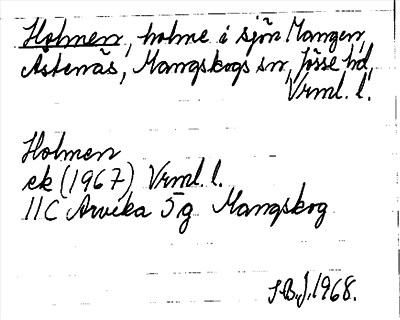 Holmen, holme i sjön Mangen,
Åstenäs, Mangskogs sn, Jösse hd,
Vrml. l.
Holmen
ek (1967) Vrml. l.
11C Arvika 5g Mangskog
S.B.J. 1968.